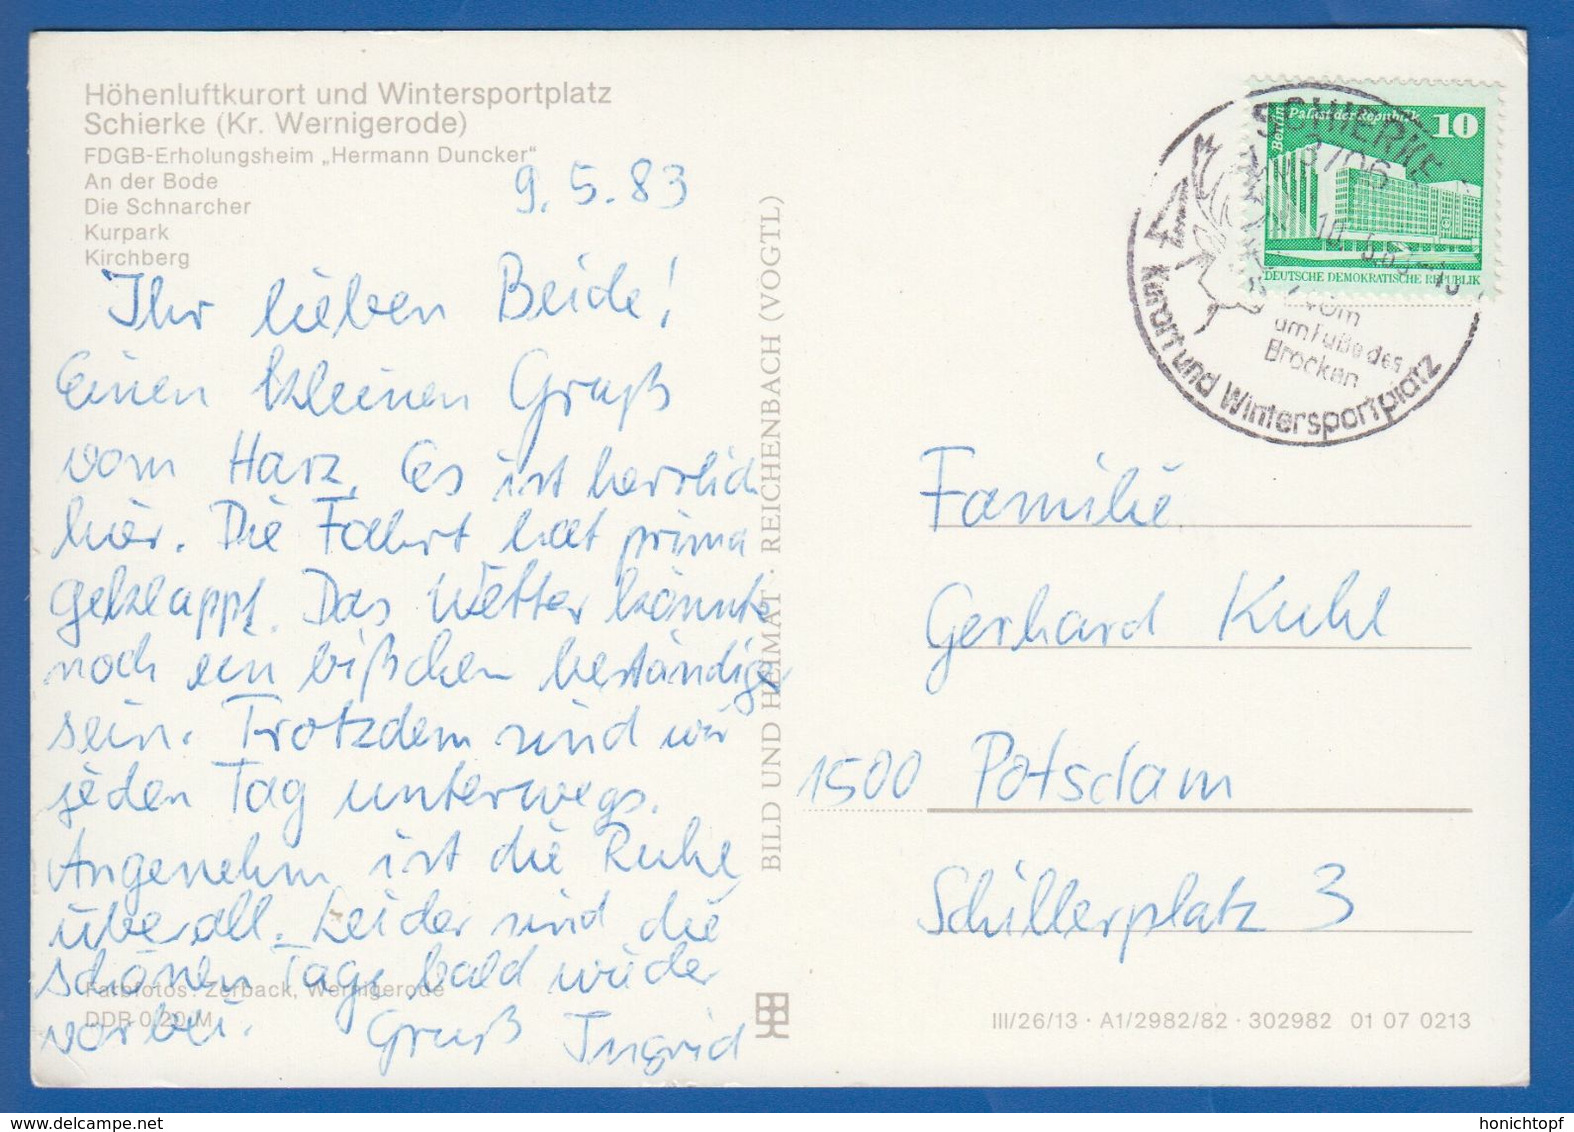 Höhenluftkurort und Wintersportplatz
Schierke (Kr. Wernigerode)
FDGB-Erholungsheim „Hermann Duncker"
An der Bode
Die Schnarcher
Kurpark
Kirchberg
9.5.83
Ihr lieben Beide!
Einen kleinen Gruß
vom Harz. Es ist herrlich
hier. Die Fahrt hat prima
geklappt. Das Wetter könnte
noch ein bißchen beständiger
sein. Trotzdem sind wir
jeden Tag unterwegs.
Angenehm ist die Ruhe
überall. Leider sind die
schönen Tage bald wieder
vorbei. Gruß Ingrid
Farbfotos: Zerback, Wernigerode
DDR 0,20 M
BILD UND HEIMAT · REICHENBACH (VOGTL)
SCHIERKE
3706
10.5.83
Kurort und Wintersportplatz
am Fuße des
Brocken
Berlin Palast der Republik 10
DEUTSCHE DEMOKRATISCHE REPUBLIK
Familie
Gerhard Kuhl
1500 Potsdam
Schillerplatz 3
III/26/13 · A1/2982/82 · 302982 01 07 0213
honichtopf
delcampe.net